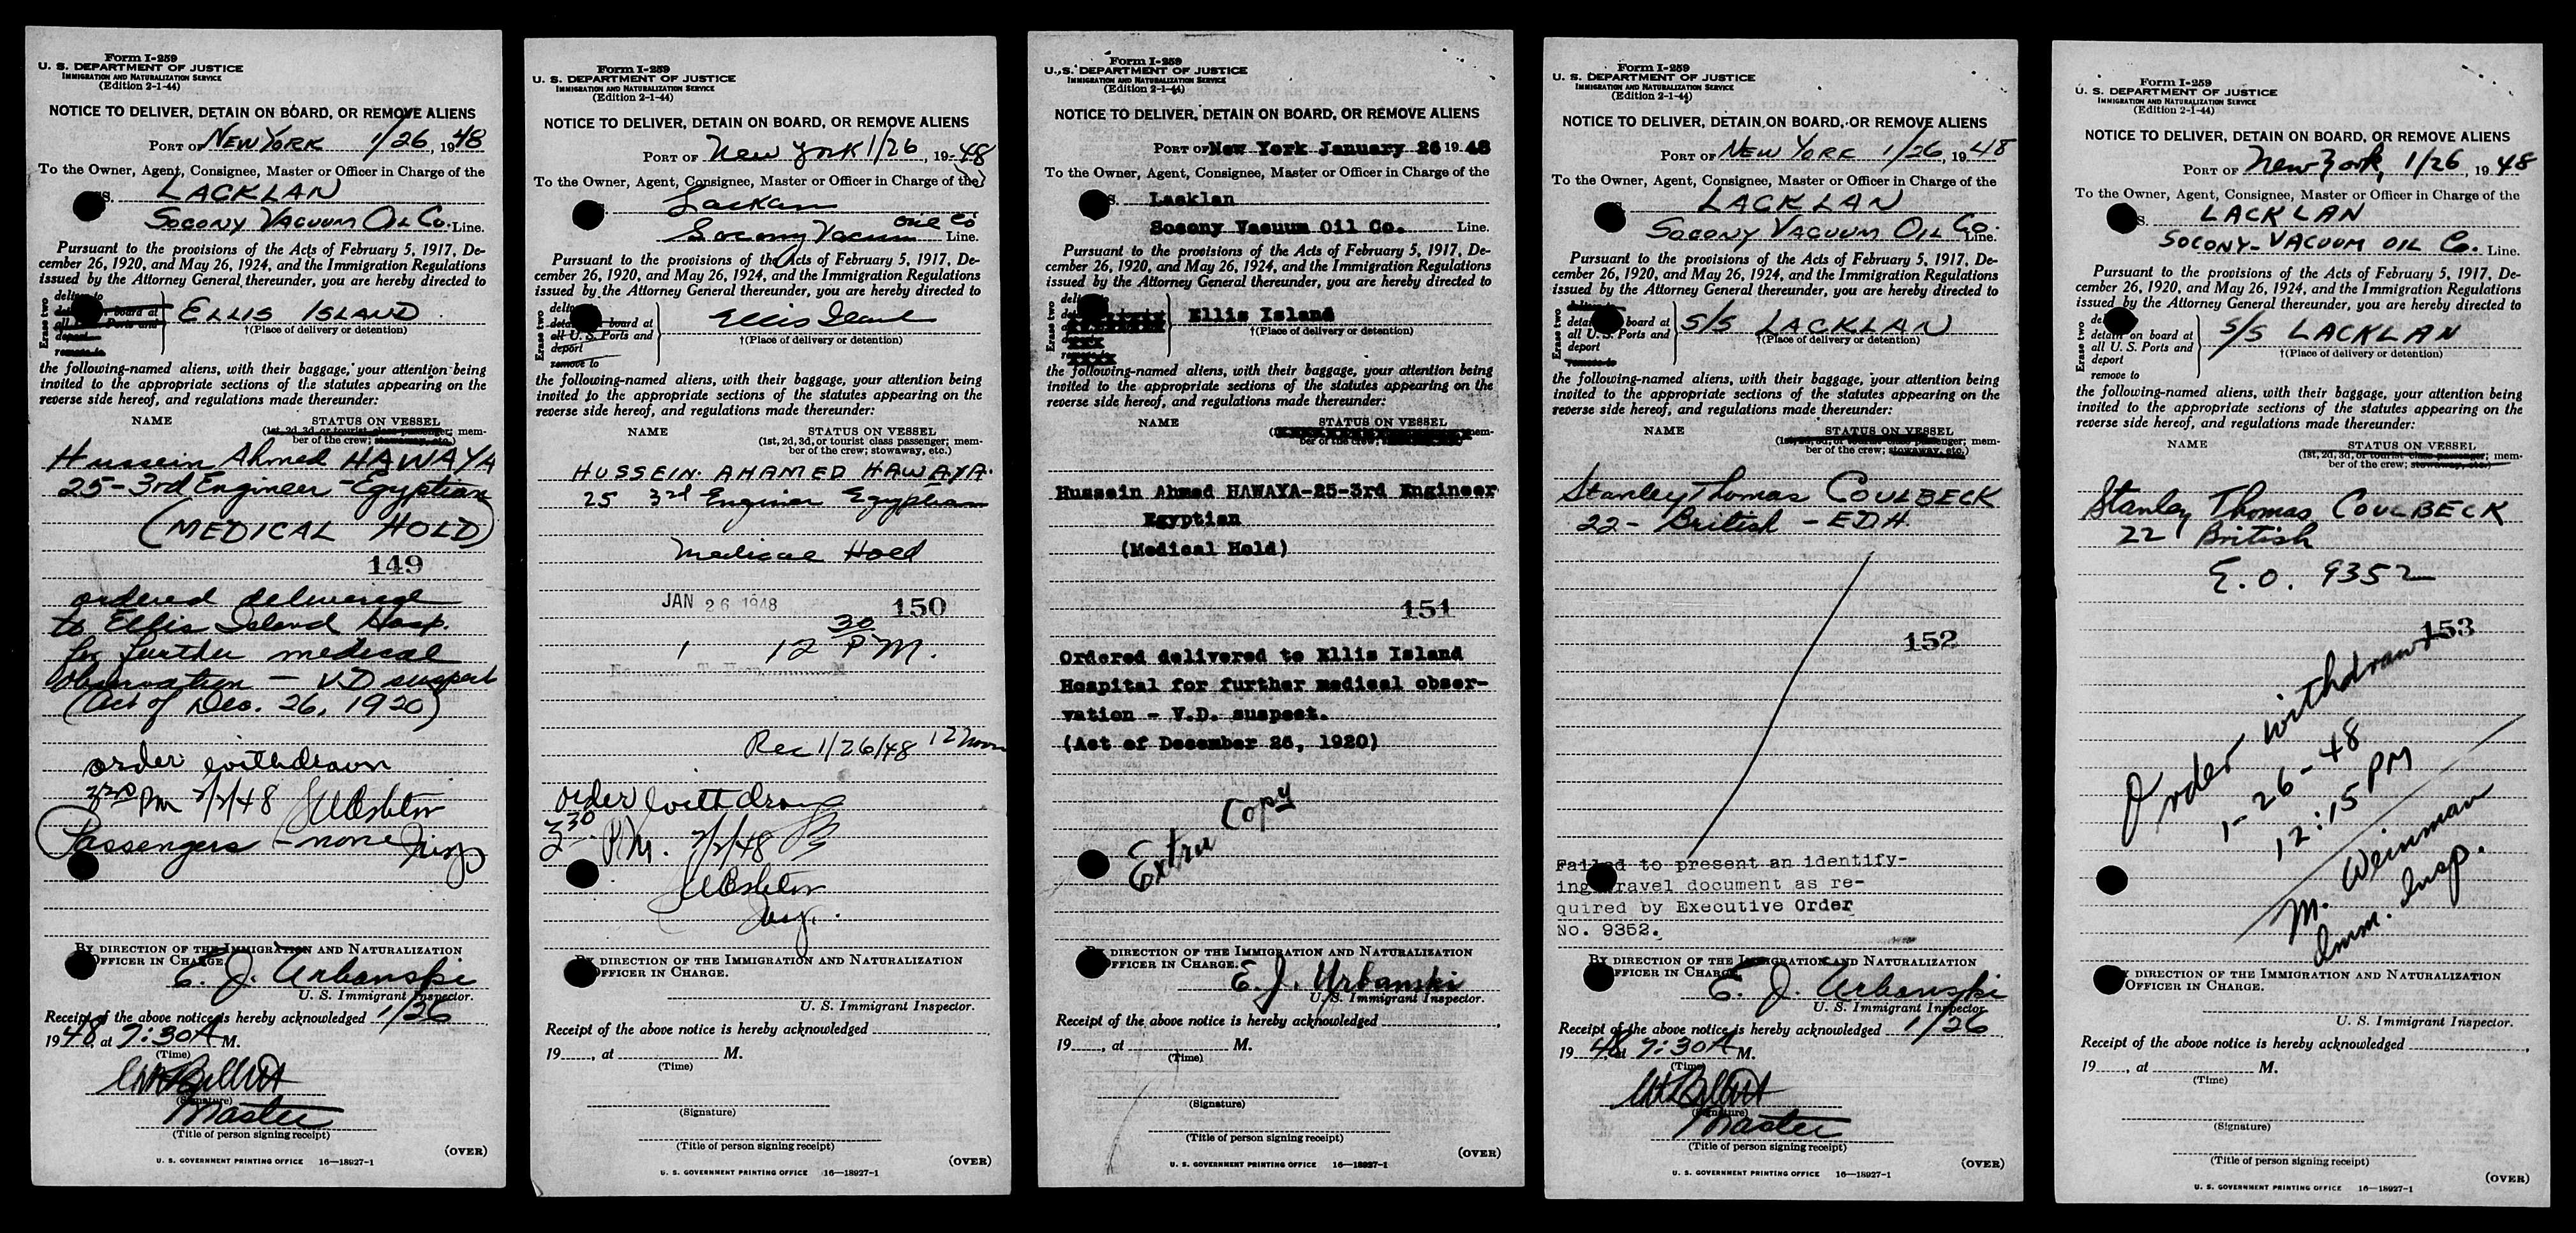 Form I-259
U. S. DEPARTMENT OF JUSTICE
IMMIGRATION AND NATURALIZATION SERVICE
(Edition 2-1-44)
NOTICE TO DELIVER, DETAIN ON BOARD, OR REMOVE ALIENS
PORT OF NEW YORK 1/26, 1948
To the Owner, Agent, Consignee, Master or Officer in Charge of the
S. LACKLAN
SOCONY VACUUM OIL CO. Line.
Pursuant to the provisions of the Acts of February 5, 1917, De-
cember 26, 1920, and May 26, 1924, and the Immigration Regulations
issued by the Attorney General thereunder, you are hereby directed to
Erase two
deliver to
board at
all Ports and
deport
remove to
ELLIS ISLAND
†(Place of delivery or detention)
the following-named aliens, with their baggage, your attention being
invited to the appropriate sections of the statutes appearing on the
reverse side hereof, and regulations made thereunder:
NAME STATUS ON VESSEL
(1st, 2d, 3d, or tourist class passenger; mem-
ber of the crew; stowaway, etc.)
Hussein Ahmed HAWAYA
25 - 3rd Engineer - Egyptian
(MEDICAL HOLD)
149
ordered delivered
to Ellis Island Hosp.
for further medical
observation - V.D suspect
(Act of Dec. 26, 1920)
order withdrawn
330 pm 2/2/48
Passengers - none
BY DIRECTION OF THE IMMIGRATION AND NATURALIZATION
OFFICER IN CHARGE
E. J. Urbanski
U. S. Immigrant Inspector.
Receipt of the above notice is hereby acknowledged 1/26
1948, at 7:30 A M.
(Time)
(Signature)
Master
(Title of person signing receipt)
(OVER)
U. S. GOVERNMENT PRINTING OFFICE 16—18927-1
Form I-259
U. S. DEPARTMENT OF JUSTICE
IMMIGRATION AND NATURALIZATION SERVICE
(Edition 2-1-44)
NOTICE TO DELIVER, DETAIN ON BOARD, OR REMOVE ALIENS
PORT OF New York 1/26, 1948
To the Owner, Agent, Consignee, Master or Officer in Charge of the
Lacklan
Socony Vacuum Oil Co Line.
Pursuant to the provisions of the Acts of February 5, 1917, De-
cember 26, 1920, and May 26, 1924, and the Immigration Regulations
issued by the Attorney General thereunder, you are hereby directed to
Erase two
deliver
detain board at
all U. S. Ports and
deport
remove to
Ellis Island
†(Place of delivery or detention)
the following-named aliens, with their baggage, your attention being
invited to the appropriate sections of the statutes appearing on the
reverse side hereof, and regulations made thereunder:
NAME STATUS ON VESSEL
(1st, 2d, 3d, or tourist class passenger; mem-
ber of the crew; stowaway, etc.)
HUSSEIN. AHAMED HAWAYA.
25 3rd Engineer Egyptian
Medical Hold
JAN 26 1948 150
1 12 30 P M.
Rec 1/26/48 12 noon
order withdrawn
330 P.M. 2/2/48
BY DIRECTION OF THE IMMIGRATION AND NATURALIZATION
OFFICER IN CHARGE.
U. S. Immigrant Inspector.
Receipt of the above notice is hereby acknowledged
19, at M.
(Time)
(Signature)
(Title of person signing receipt)
(OVER)
U. S. GOVERNMENT PRINTING OFFICE 16—18927-1
Form I-259
U. S. DEPARTMENT OF JUSTICE
IMMIGRATION AND NATURALIZATION SERVICE
(Edition 2-1-44)
NOTICE TO DELIVER, DETAIN ON BOARD, OR REMOVE ALIENS
PORT OF New York January 26 1948
To the Owner, Agent, Consignee, Master or Officer in Charge of the
S. Lacklan
Socony Vacuum Oil Co. Line.
Pursuant to the provisions of the Acts of February 5, 1917, De-
cember 26, 1920, and May 26, 1924, and the Immigration Regulations
issued by the Attorney General thereunder, you are hereby directed to
Erase two
Ellis Island
†(Place of delivery or detention)
the following-named aliens, with their baggage, your attention being
invited to the appropriate sections of the statutes appearing on the
reverse side hereof, and regulations made thereunder:
NAME STATUS ON VESSEL
mem-
ber of the crew;
Hussein Ahmed HAWAYA-25-3rd Engineer
Egyptian
(Medical Hold)
151
Ordered delivered to Ellis Island
Hospital for further medical obser-
vation - V.D. suspect.
(Act of December 26, 1920)
Extra Copy
BY DIRECTION OF THE IMMIGRATION AND NATURALIZATION
OFFICER IN CHARGE.
E. J. Urbanski
U. S. Immigrant Inspector.
Receipt of the above notice is hereby acknowledged
19, at M.
(Time)
(Signature)
(Title of person signing receipt)
(OVER)
U. S. GOVERNMENT PRINTING OFFICE 16—18927-1
Form I-259
U. S. DEPARTMENT OF JUSTICE
IMMIGRATION AND NATURALIZATION SERVICE
(Edition 2-1-44)
NOTICE TO DELIVER, DETAIN ON BOARD, OR REMOVE ALIENS
PORT OF NEW YORK 1/26, 1948
To the Owner, Agent, Consignee, Master or Officer in Charge of the
LACKLAN
SOCONY VACUUM OIL CO. Line.
Pursuant to the provisions of the Acts of February 5, 1917, De-
cember 26, 1920, and May 26, 1924, and the Immigration Regulations
issued by the Attorney General thereunder, you are hereby directed to
Erase two
detain board at
all U. S. Ports and
deport
remove to
S/S LACKLAN
†(Place of delivery or detention)
the following-named aliens, with their baggage, your attention being
invited to the appropriate sections of the statutes appearing on the
reverse side hereof, and regulations made thereunder:
NAME STATUS ON VESSEL
(1st, 2d, 3d, or tourist class passenger; mem-
ber of the crew; stowaway, etc.)
Stanley Thomas COULBECK
22 - British - EDH
152
Failed to present an identify-
ing travel document as re-
quired by Executive Order
No. 9352.
BY DIRECTION OF THE IMMIGRATION AND NATURALIZATION
OFFICER IN CHARGE
E. J. Urbanski
U. S. Immigrant Inspector.
Receipt of the above notice is hereby acknowledged 1/26
1948, at 7:30 A M.
(Time)
(Signature)
Master
(Title of person signing receipt)
(OVER)
U. S. GOVERNMENT PRINTING OFFICE 16—18927-1
Form I-259
U. S. DEPARTMENT OF JUSTICE
IMMIGRATION AND NATURALIZATION SERVICE
(Edition 2-1-44)
NOTICE TO DELIVER, DETAIN ON BOARD, OR REMOVE ALIENS
PORT OF New York, 1/26, 1948
To the Owner, Agent, Consignee, Master or Officer in Charge of the
S. LACKLAN
SOCONY-VACUUM OIL Co. Line.
Pursuant to the provisions of the Acts of February 5, 1917, De-
cember 26, 1920, and May 26, 1924, and the Immigration Regulations
issued by the Attorney General thereunder, you are hereby directed to
Erase two
detain on board at
all U. S. Ports and
deport
remove to
S/S LACKLAN
†(Place of delivery or detention)
the following-named aliens, with their baggage, your attention being
invited to the appropriate sections of the statutes appearing on the
reverse side hereof, and regulations made thereunder:
NAME STATUS ON VESSEL
(1st, 2d, 3d, or tourist class passenger; mem-
ber of the crew; stowaway, etc.)
Stanley Thomas COULBECK
22 British
E.O. 9352
153
Order withdrawn
1-26-48
12:15 PM
M. Weinman
Imm. Insp.
BY DIRECTION OF THE IMMIGRATION AND NATURALIZATION
OFFICER IN CHARGE.
U. S. Immigrant Inspector.
Receipt of the above notice is hereby acknowledged
19, at M.
(Time)
(Signature)
(Title of person signing receipt)
(OVER)
U. S. GOVERNMENT PRINTING OFFICE 16—18927-1